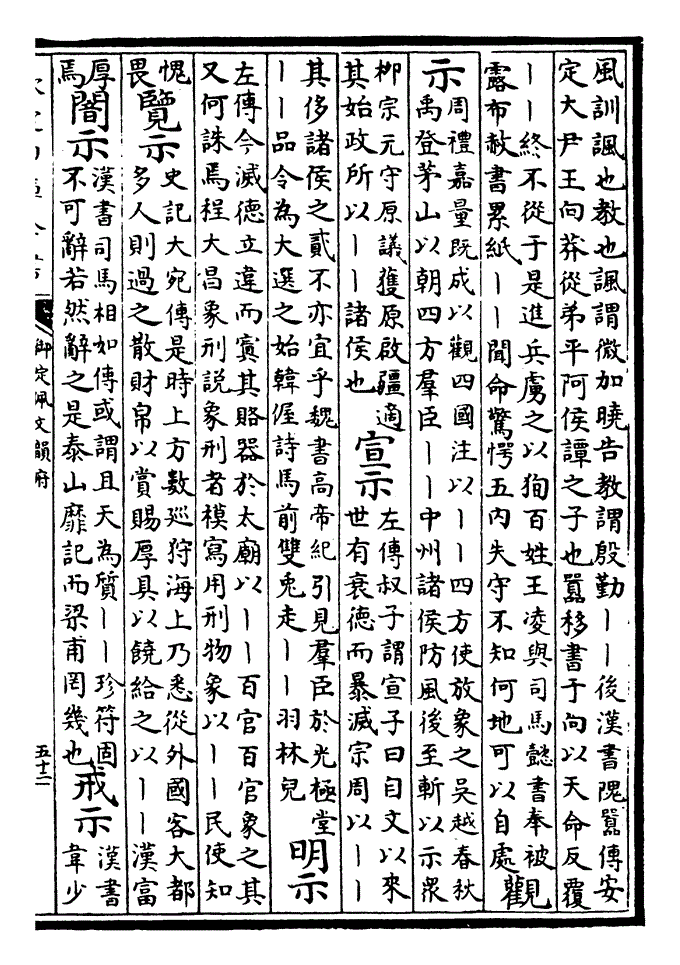 風訓諷也教也諷謂微加曉告教謂殷勤丨丨後漢書隗囂傳安
定大尹王向莽從弟平阿侯譚之子也囂移書于向以天命反覆
丨丨終不從于是進兵虜之以狥百姓王凌與司馬懿書奉被
露布赦書累紙丨丨聞命驚愕五內失守不知何地可以自處
觀
示
周禮嘉量既成以觀四國注以丨丨四方使放象之吳越春秋
禹登茅山以朝四方羣臣丨丨中州諸侯防風後至斬以示眾
柳宗元守原議獲原啟疆適
其始政所以丨丨諸侯也
宣示
左傳叔子謂宣子曰自文以來
世有衰德而暴滅宗周以丨丨
其侈諸侯之貳不亦宜乎魏書高帝紀引見羣臣於光極堂
丨丨品令為大選之始韓偓詩馬前雙兎走丨丨羽林兒
明示
左傳今滅德立違而寘其賂器於太廟以丨丨百官百官象之其
又何誅焉程大昌象刑說象刑者模寫用刑物象以丨丨民使知
愧
畏
覽示
史記大宛傳是時上方數巡狩海上乃悉從外國客大都
多人則過之散財帛以賞賜厚具以饒給之以丨丨漢富
厚
焉
闇示
漢書司馬相如傳或謂且天為質丨丨珍符固
不可辭若然辭之是泰山靡記而梁甫罔幾也
戒示
漢書
韋少
御定佩文韻府
五十二